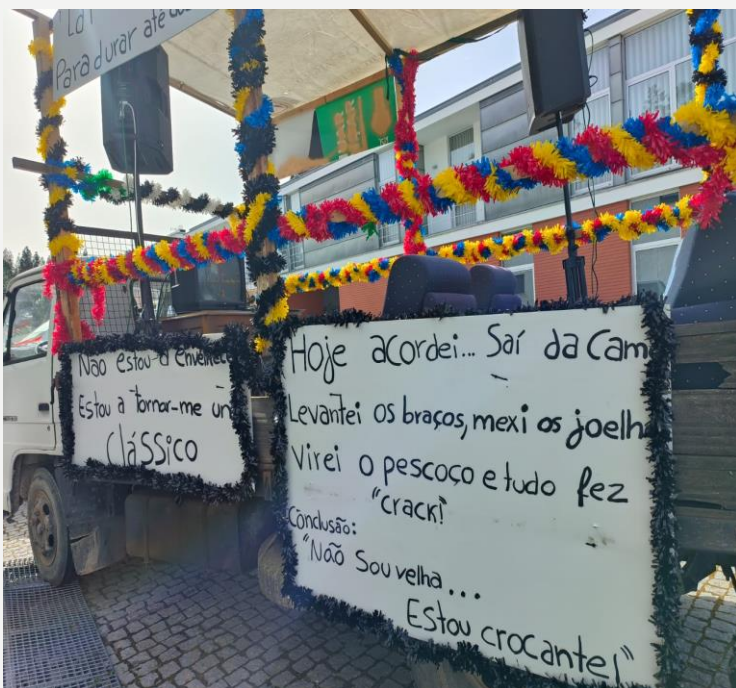 Para durar até
Não estou a
Estou a Tornar-me
Clássico
Hoje acordei... Saí da
Levantei os braços, mexi os
Virei o pescoço e tudo fez
"Crack!
Conclusão:
"Não Sou velha...
Estou crocante!"